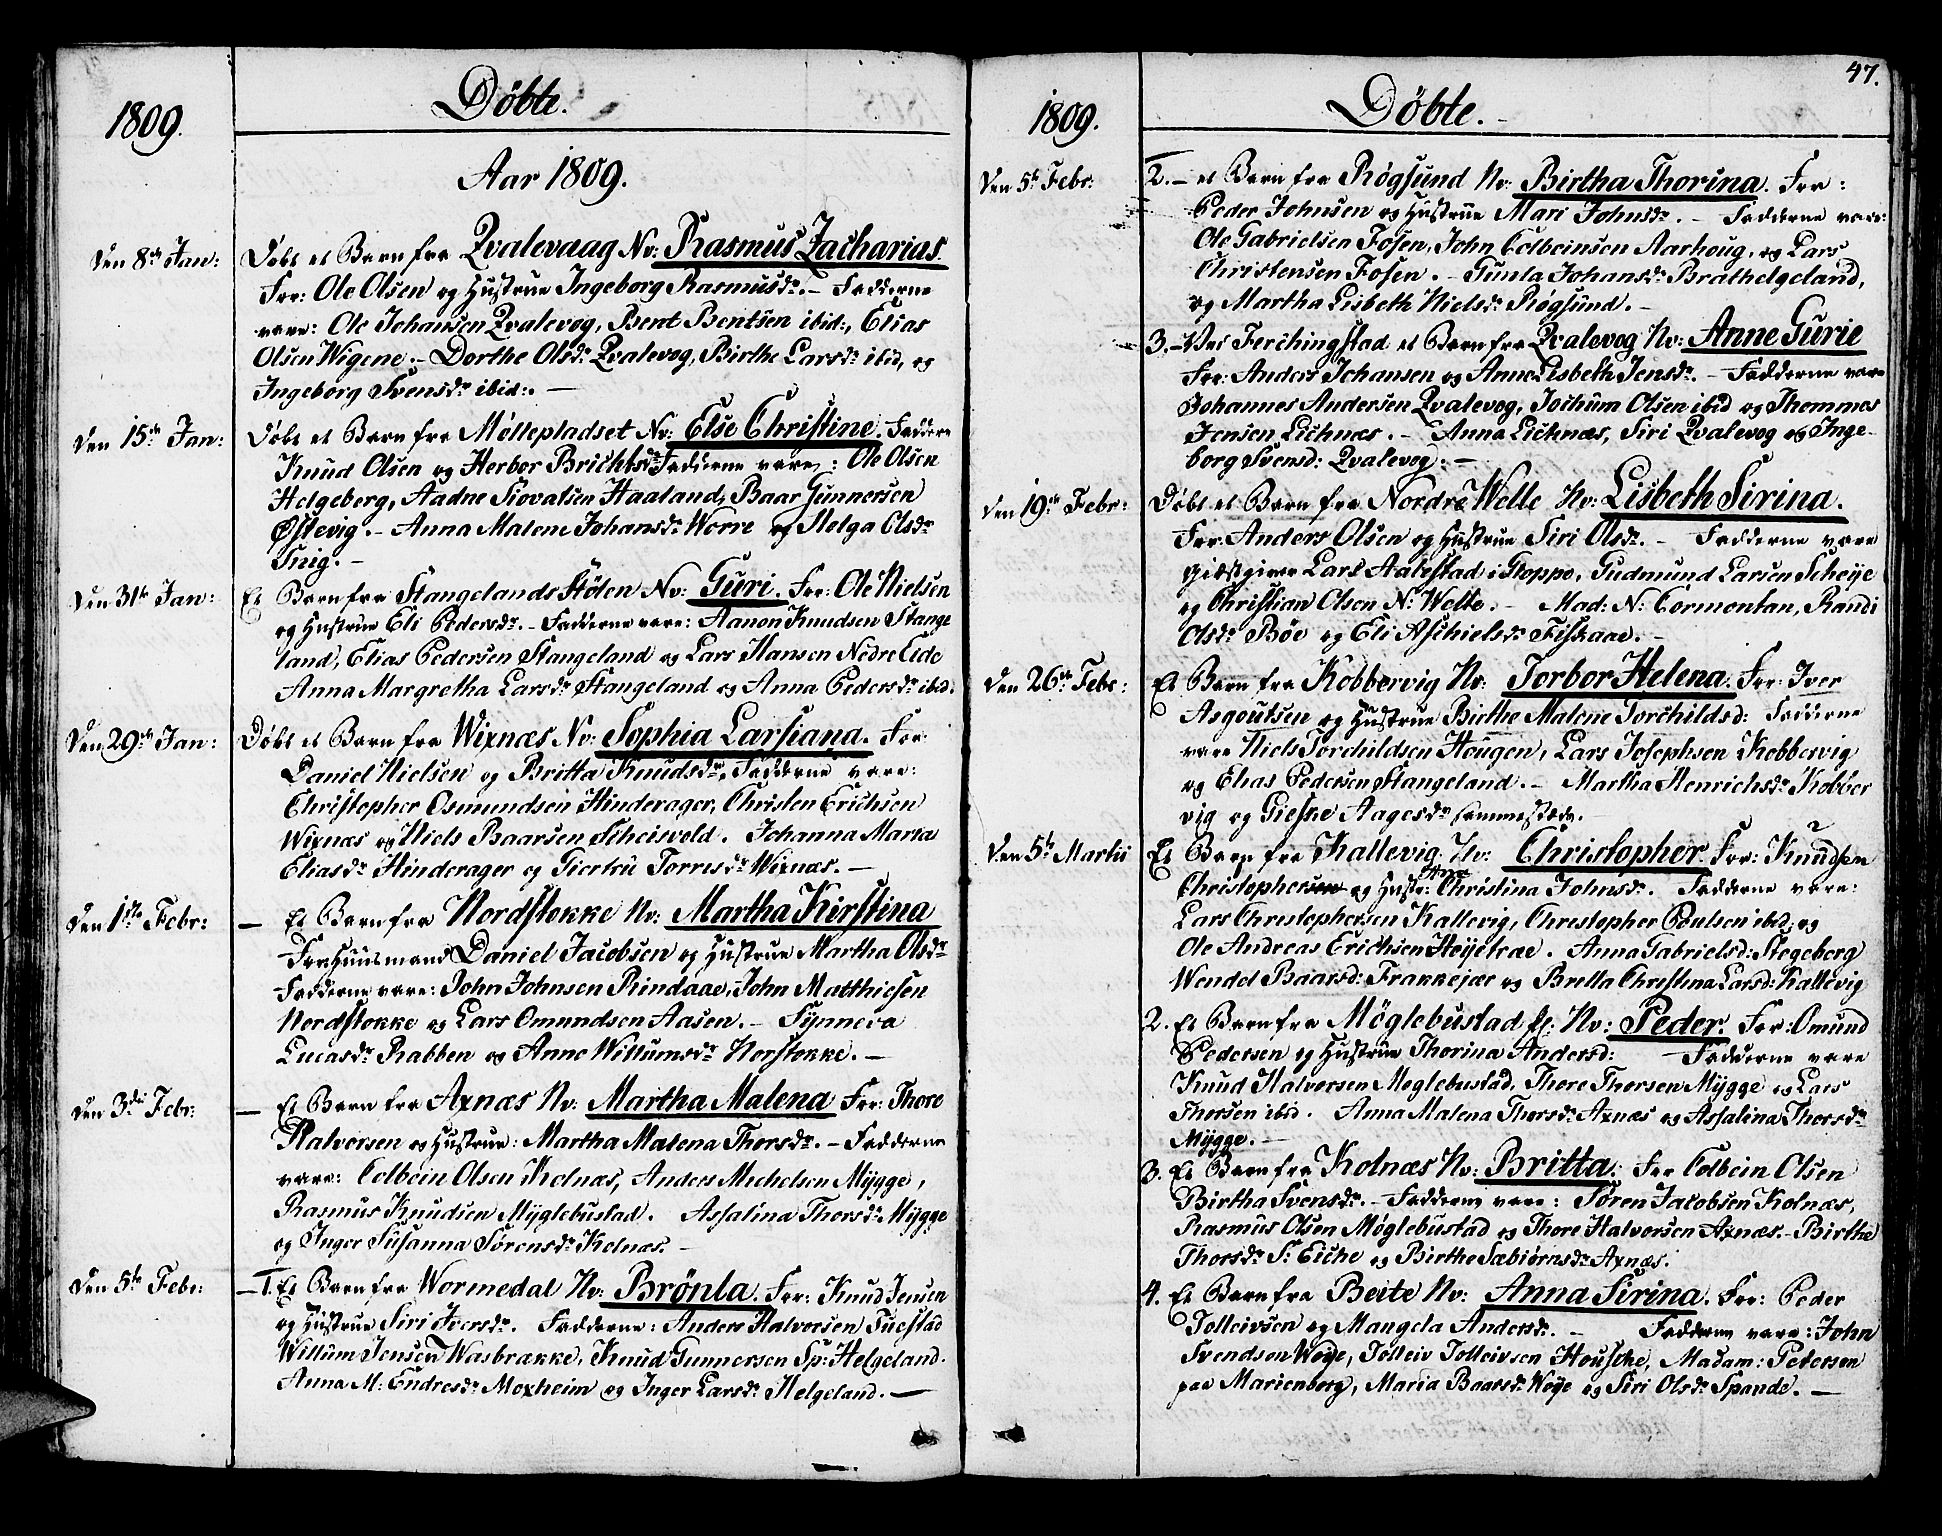 1809.
Döbte.
Aar 1809.
Den 8de Jan: Döbt et Barn fra Qvalevaag Nv: Rasmus Zacharias.
For: Ole Olsen og Hustrue Ingeborg Rasmusdr. – Fadderne
vare: Ole Johansen Qvalevog, Bent Bentsen ibid:, Elias
Olsen Wigene. – Dorthe Olsdr Qvalevog, Birthe Larsdr ibid, og
Ingeborg Svensdr ibid:. –
Den 15de Jan: Döbt et Barn fra Møllepladset Nv: Else Christine. Faddere
Knud Olsen og Herbor Brichtsdr Fadderne vare: Ole Olsen
Helgeberg, Aadne Siovalsen Haaland, Baar Gunnersen
Østevig. – Anna Malene Johansdr Worre og Helga Olsdr
Snig. –
Den 31te Jan: Et Barn fra StangelandsStølen Nv: Guri. For: Ole Nielsen
og Hustrue Eli Pedersdr. – Fadderne vare: Aanon Knudsen Stange
land, Elias Pedersen Stangeland og Lars Hansen Nedre Eide
Anna Margretha Larsdr Stangeland og Anna Pedersdr ibid:
Den 29de Jan: Döbt et Barn fra Wixnæs Nv: Sophia Larsiana. For:
Daniel Nielsen og Britta Knudsdr, Fadderne vare:
Christopher Osmundsen Hinderager, Christen Erichsen
Wixnæs og Niels Baarsen Scheisvold. Johanna Maria
Eliasdr Hinderager og Giertru Torrisdr Wixnæs. –
Den 1ste Febr: – Et Barn fra Nordstokke Nv: Martha Kirstina
For: Huusmand Daniel Jacobsen og Hustrue Martha Olsdr
Fadderne vare: John Johnsen Rindaae, John Matthiesen
Nordstokke og Lars Omundsen Aasen. – Synneva
Lucasdr Rabben og Anne Willumsdr Norstokke. –
Den 3die Febr: – Et Barn fra Axnæs Nv: Martha Malena For: Thore
Halversen og Hustrue: Martha Malena Thorsdr. – Fadderne
vare: Colbein Olsen Kolnæs, Anders Michelsen Mygge,
Rasmus Knudsen Myglebustad. Assalina Thorsdr Mygge
og Inger Susanna Sörensdr Kolnæs. –
Den 5te Febr: – 1. Et Barn fra Wormedal Nv: Brönla. For: Knud Jensen
og Hustrue Siri Iversdr. Fadderne: Anders Halversen Tuestad
Willum Jensen Wasbrække, Knud Gunnersen Sp: Helgeland.
Anna M: Endresdr Moxheim og Inger Larsdr Helgeland. –
47.
1809.
Döbte.
Den 5te Febr: 2. – et Barn fra Røgsund Nv: Birtha Thorina. For:
Peder Johnsen og Hustrue Mari Johnsdr. – Fadderne vare:
Ole Gabrielsen Fosen, John Colbeinsen Aarhoug, og Lars
Christensen Fosen. – Gunla Johansdr Brathelgeland,
og Martha Lisbeth Nielsdr Røgsund. –
3. – Ved Ferchingstad et Barn fra Qvalevog Nv: Anne Gurie
For: Anders Johansen og Anne Lisbeth Jensdr. – Fadderne vare
Johannes Andersen Qvalevog, Jochum Olsen ibid og Thommes
Jensen Lichnæs. – Anna Lichnæs, Siri Qvalevog og Inge-
borg Svensd: Qvalevog: –
Den 19de Febr: Döbt et Barn fra Nordre Welle Nv: Lisbeth Sirina.
For: Anders Olsen og Hustrue Siri Olsdr. – Fadderne vare
Giæstgiver Lars Aabestad i Stoppo, Gudmund Larsen Scheye
og Christian Olsen N: Welle. – Mad: N: Cormontan, Randi
Olsdr Böe og Eli Aschielsdr Fiskaae. –
Den 26de Febr: Et Barn fra Kobbervig Nv: Torbor Helena. For: Iver
Asgoutsen og Hustrue Birthe Malene Torchildsd: Fadderne
vare Niels Torchildsen Hougen, Lars Josephsen Kobbervig
og Elias Pedersen Stangeland. – Martha Henrichsdr Kobber
vig og Gieske Aagesdr sammestæds. –
Den 5te Martii Et Barn fra Kallevig Nv: Christopher. For: Knudsen
Christophersen og Hustr: Anne Christina Johnsdr. Fadderne vare:
Lars Christophersen Kallevig, Christopher Poulsen ibid, og
Ole Andreas Erichsen Høyetræe. Anna Gabrielsd: Stegeberg
Wendel Baarsd: Frankejær og Britta Christina Larsd: Kallevig
2. Et Barn fra Møglebustad fl: Nv: Peder. For: Omund
Pedersen og Hustrue Thorina Andersd: – Fadderne vare
Knud Halversen Møglebustad, Thore Thorsen Mygge og Lars
Thorsen ibid. Anna Malena Thorsdr Axnæs og Assalina Thorsdr
Mygge. –
3. Et Barn fra Kolnæs Nv: Britta. For Colbein Olsen
Birtha Svensdr. – Fadderne vare: Søren Jacobsen Kolnæs,
Rasmus Olsen Møglebustad og Thore Halversen Axnæs. – Birthe
Thorsdr S: Eiche og Birthe Sæbiörnsdr Axnæs.
4. Et Barn fra Beite Nv: Anna Sirina. For: Peder
Tolleivsen og Mangela Andersdr. – Fadderne vare: John
Svendsen Woye, Tolleiv Tolleivsen Houske, Madam: Petersen
paa Marienberg, Maria Baarsdr Woye og Siri Olsdr Spande. –